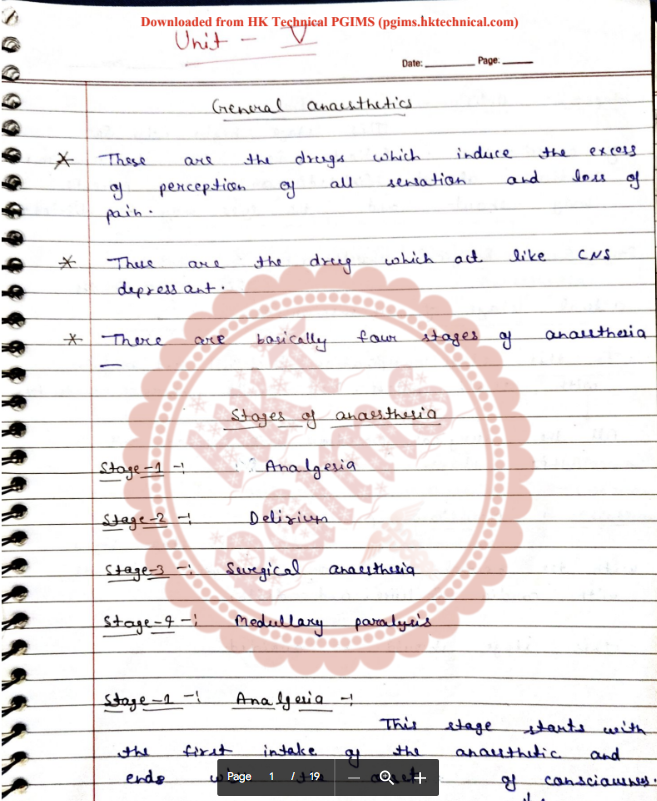 Downloaded from HK Technical PGIMS (pgims.hktechnical.com)
Unit - V
Date: Page:
General anaesthetics
* These are the drugs which induce the excess
of perception of all sensation and loss of
pain.
* These are the drug which act like CNS
depressant.
* There are basically four stages of anaesthesia
—
HKT
PGIMS
Stages of anaesthesia
Stage-1 -: Analgesia
Stage-2 -: Delirium
Stage-3 -: Surgical anaesthesia
Stage-4 -: Medullary paralysis
Stage-1 -: Analgesia -:
This stage starts with
the first intake of the anaesthetic and
ends the of consciousness.
Page 1 / 19 — +